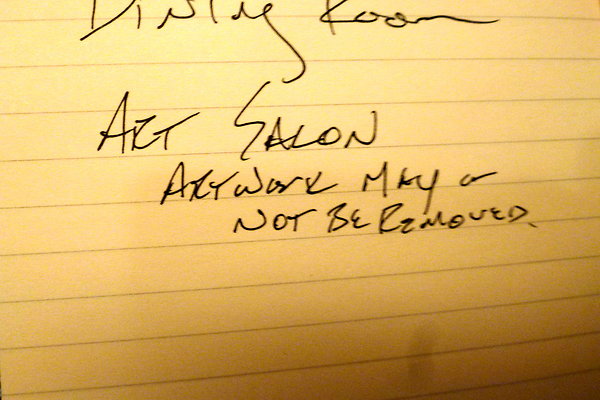 Dining Room
ART SALON
ARTWORK MAY or
NOT BE REMOVED.